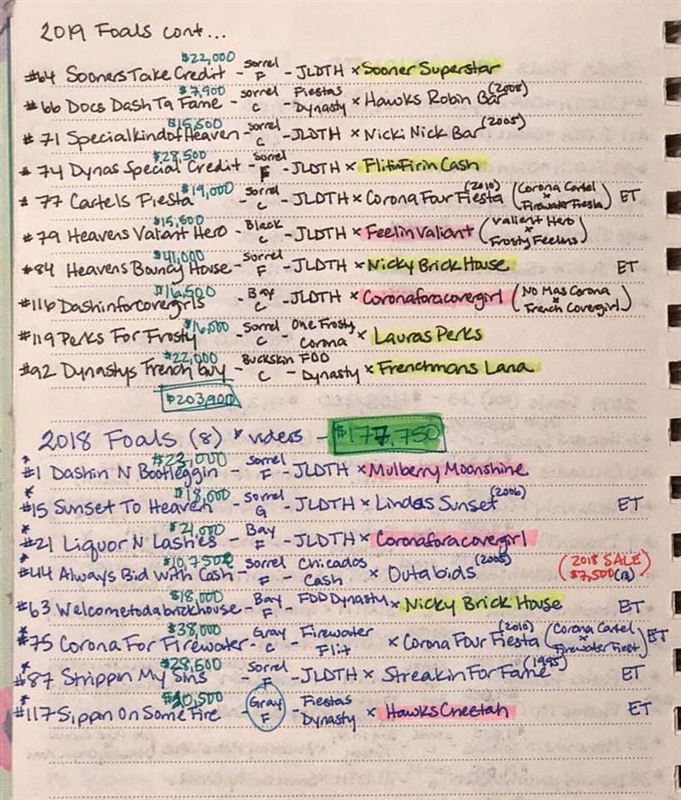 2019 Foals cont...
$22,000
#64 Sooners Take Credit - sorrel F - JLDTH x Sooner Superstar
$7,900
#66 Docs Dash Ta Fame - sorrel C - Fiestas Dynasty x Hawks Robin Bar (2005)
$15,500
#71 Specialkindofheaven - sorrel C - JLDTH x Nicki Nick Bar (2005)
$28,500
#74 Dynas Special Credit - sorrel F - JLDTH x FlitnFirin Cash
$19,000
#77 Cartels Fiesta - sorrel C - JLDTH x Corona Four Fiesta (2010) (Corona Cartel x Firewater Fiesta) ET
$15,500
#79 Heavens Valiant Hero - Black C - JLDTH x Feelin Valiant (Valient Hero x Frosty Feelins)
$41,000
#84 Heavens Bouncy House - sorrel F - JLDTH x Nicky Brick House ET
$16,500
#116 Dashinforcovergirls - Bay C - JLDTH x Coronaforacovergirl (No Mas Corona x French Covergirl)
$16,000
#119 Perks For Frosty - Sorrel C - One Frosty Corona x Lauras Perks
$22,000
#92 Dynastys French Guy - Buckskin C - FDD Dynasty x Frenchmans Lana
$203,900
2018 Foals (8) * videos - $177,750
$23,000
* #1 Dashin N Bootleggin - Sorrel F - JLDTH x Mulberry Moonshine
$18,000
* #15 Sunset To Heaven - Sorrel G - JLDTH x Lindas Sunset (2006) ET
$21,000
* #21 Liquor N Lashes - Bay F - JLDTH x Coronaforacovergirl
$10,750
* #44 Always Bid With Cash - Sorrel F - Chicados Cash x Outabids (2005) (2018 SALE $7,500 (13))
$18,000
* #63 Welcometodabrickhouse - Bay F - FDD Dynasty x Nicky Brick House ET
$38,000
* #75 Corona For Firewater - Gray C - Firewater Flit x Corona Four Fiesta (2010) (Corona Cartel x Firewater Fiest) ET
$28,500
* #87 Strippn My Sins - Sorrel F - JLDTH x Streakin For Fame (1995) ET
$20,500
* #117 Sippn On Some Fire - Gray F - Fiestas Dynasty x Hawks Cheetah ET